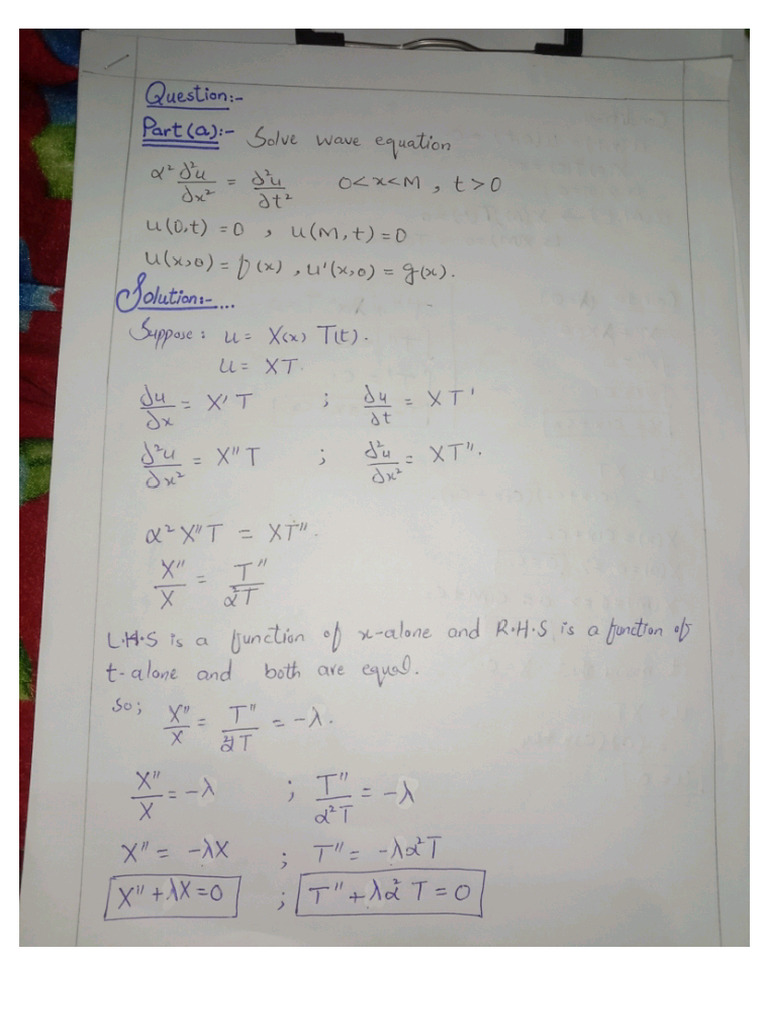 Question:-
Part (a):- Solve wave equation
α² ∂²u/∂x² = ∂²u/∂t² 0<x<M, t>0
u(0,t)=0, u(M,t)=0
u(x,0)=f(x), u'(x,0)=g(x).
Solution:-...
Suppose: u = X(x) T(t).
u = XT.
∂u/∂x = X'T ; ∂u/∂t = XT'
∂²u/∂x² = X"T ; ∂²u/∂x² = XT".
α²X"T = XT".
X"/X = T"/α²T
L.H.S is a function of x-alone and R.H.S is a function of
t-alone and both are equal.
So; X"/X = T"/α²T = -λ.
X"/X = -λ ; T"/α²T = -λ
X" = -λX ; T" = -λα²T
X"+λX=0 ; T"+λα²T=0